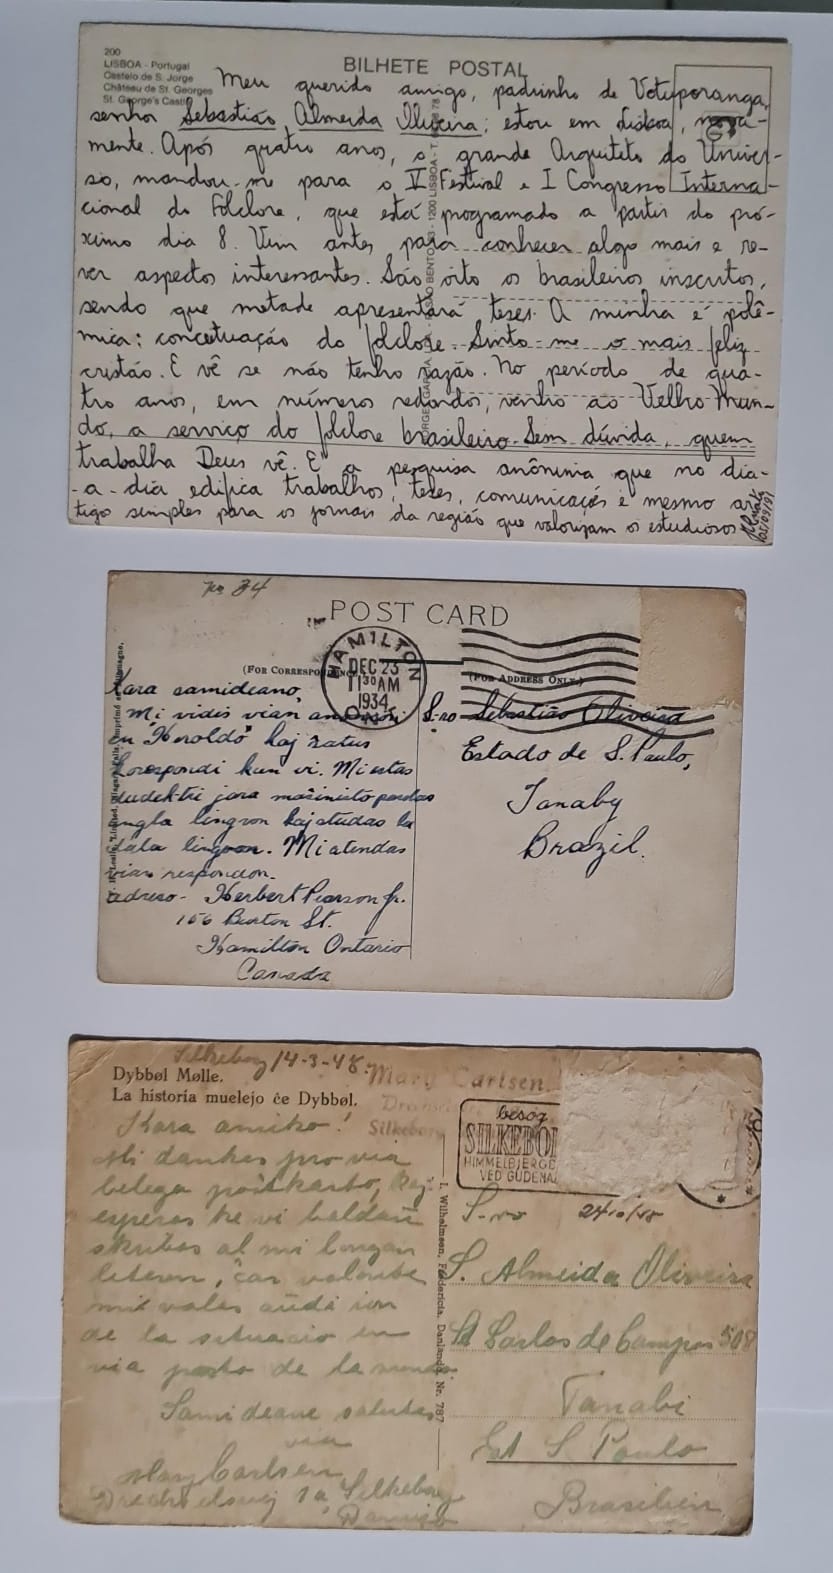 200
LISBOA - Portugal
Castelo de S. Jorge
Château de St. Georges
St. George's Castle
BILHETE POSTAL
Meu querido amigo, padrinho de Votuporanga,
senhor Sebastião Almeida Oliveira; estou em Lisboa, nova-
mente. Após quatro anos, o grande Arquiteto do Univer-
so, mandou-me para o V Festival e I Congresso Interna-
cional do Folclore, que está programado a partir do pró-
ximo dia 8. Vim antes para conhecer algo mais e re-
ver aspectos interessantes. São oito os brasileiros inscritos,
sendo que metade apresentará teses. A minha é polê-
mica: conceituação do folclore. Sinto-me o mais feliz
cristão. E vê se não tenho razão. No período de qua-
tro anos, em números redondos, venho ao Velho Mun-
do, a serviço do folclore brasileiro. Sem dúvida, quem
trabalha Deus vê. E a pesquisa anônima que no dia-
-a-dia edifica trabalhos, teses, comunicações e mesmo ar-
tigo simples para os jornais da região que valorizam os estudiosos
05/09/91
No 34
POST CARD
HAMILTON
DEC 23
11 30 AM
1934
ONT.
(FOR CORRESPONDENCE
(FOR ADDRESS ONLY)
Kara samideano,
Mi vidis vian anoncon
en "Heroldo" kaj ŝatus
korespondi kun vi. Mi estas
dudek-tri jara maŝinisto parolas
angla lingvon kaj studas la
lingvon. Mi atendas
vian respondon.
adreso - Herbert Pearson Jr.
156 Burton St.
Hamilton Ontario
Canada
S-ro Sebastião Oliveira
Estado de S. Paulo,
Tanaby
Brazil.
Silkeborg 14-3-48.
Dybbøl Mølle.
La historia muelejo ĉe Dybbøl.
Mary Carlsen
Silkeborg
besøg
SILKEBOR
HIMMELBJERGE
VED GUDENA
Kara amiko!
Mi dankas pro via
belega poŝtkarto, kaj
esperas ke vi baldaŭ
skribos al mi longan
leteron, ĉar volonte
mi volas aŭdi ion
de la situacio en
via parto de la mondo.
Samideane salutas
via
Mary Carlsen
1a Silkeborg
Danujo
I. Wilhelmsen, Fredericia, Danlando. Nr. 787
S-ro
24/10/48
S. Almeida Oliveira
Carlos de Campos 508
Tanabi
Est S Paulo
Brasilien